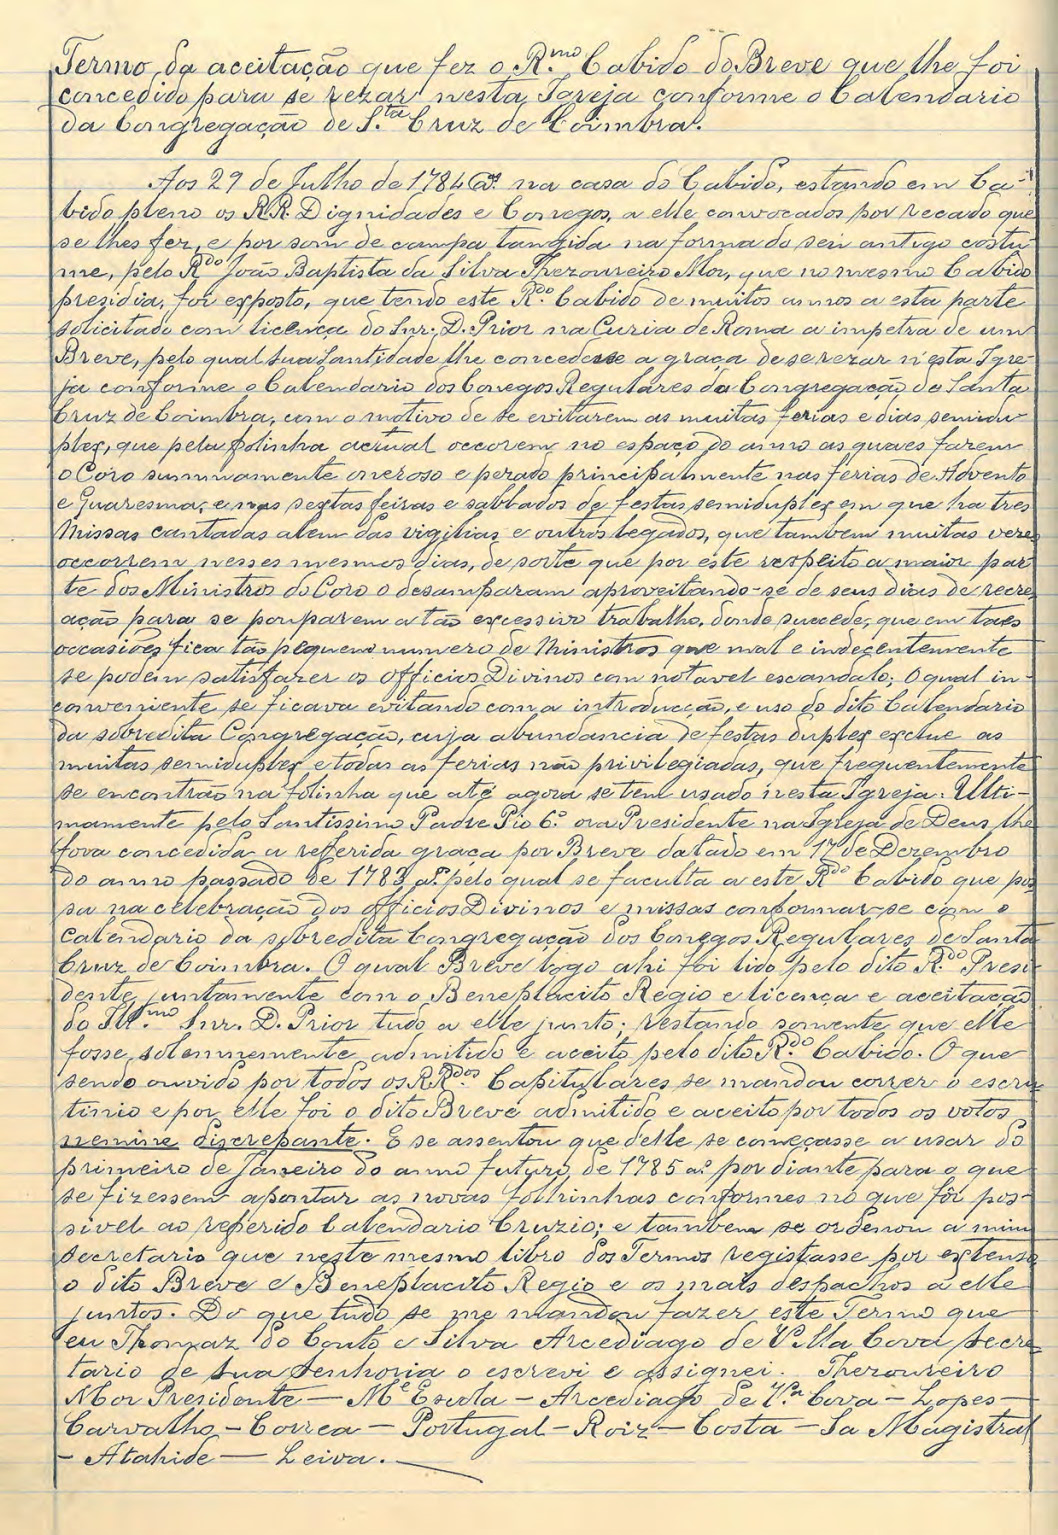 Termo da aceitação que fez o R.mo Cabido do Breve que lhe foi
concedido para se rezar nesta Igreja conforme o Calendario
da Congregação de S.ta Cruz de Coimbra.
Aos 29 de Julho de 1784 a.s na casa do Cabido, estando em Ca-
bido pleno os RR. Dignidades e Conegos, a elle convocados por recado que
se lhes fez, e por som de campa tangida na forma do seu antigo costu-
me, pelo R.do João Baptista da Silva Thezoureiro Mor, que no mesmo Cabido
presidia, foi exposto, que tendo este R.do Cabido de muitos annos a esta parte
solicitado com licença do Snr. D. Prior na Curia de Roma a impetra de um
Breve, pelo qual sua Santidade lhe concedesse a graça de se rezar n'esta Igre-
ja conforme o Calendario dos Conegos Regulares da Congregação de Santa
Cruz de Coimbra, com o motivo de se evitarem as muitas ferias e dias semidu-
plex, que pela folinha actual occorem no espaço do anno as quaes fazem
o Coro summamente oneroso e pezado principalmente nas ferias de Advento
e Quaresma, e nas sextas feiras e sabbados de festas semiduplex em que ha tres
Missas cantadas alem das vigilias e outros legados, que tambem muitas vezes
occorrem nesses mesmos dias, de sorte que por este respeito a maior par-
te dos Ministros do Coro o desamparam aproveitando-se de seus dias de recre-
ação para se pouparem a tão excessivo trabalho, donde succede, que em taes
occasiões fica tão pequeno numero de Ministros que mal e indecentemente
se podem satisfazer os officios Divinos com notavel escandalo; O qual in-
conveniente se ficava evitando com a introducção, e uso do dito Calendario
da sobredita Congregação, cuja abundancia de festas duplex exclue as
muitas semiduplex e todas as ferias não privilegiadas, que frequentemente
se encontrão na folinha que até agora se tem usado n'esta Igreja. Ulti-
mamente pelo Santissimo Padre Pio 6.º ora Presidente na Igreja de Deus, lhe
fora concedida a referida graça por Breve datado em 17 de Dezembro
do anno passado de 1783 a.s pelo qual se faculta a este R.do Cabido que pos-
sa na celebração dos officios Divinos e missas conformar-se com o
Calendario da sobredita Congregação dos Conegos Regulares de Santa
Cruz de Coimbra. O qual Breve logo ahi foi lido pelo dito R.do Presi-
dente, juntamente com o Beneplacito Regio e licença e aceitação
do Ill.mo Snr. D. Prior tudo a elle junto; restando somente que elle
fosse solemnemente admitido e aceito pelo dito R.do Cabido. O que
sendo ouvido por todos os RR.dos Capitulares se mandou correr o escru-
tinio e por elle foi o dito Breve admitido e aceito por todos os votos
nemine discrepante. E se assentou que delle se começasse a usar do
primeiro de Janeiro do anno futuro de 1785 a.s por diante para o que
se fizessem apontar as novas folhinhas conformes no que fôr pos-
sivel ao referido Calendario Cruzio; e tambem se ordenou a mim
Secretario que neste mesmo libro dos Termos registasse por extenso
o dito Breve e Beneplacito Regio e os mais despachos a elle
juntos. Do que tudo se me mandou fazer este Termo que
eu Thomaz do Couto e Silva Arcediago de Villa Cova Secre-
tario de sua senhoria o escrevi e assignei. Thezoureiro
Mor Presidente — M.e Escola — Arcediago de V.a Cova — Lopes —
Carvalho — Correa — Portugal — Roiz — Costa — Sa Magistral
— Atahide — Leiva. —